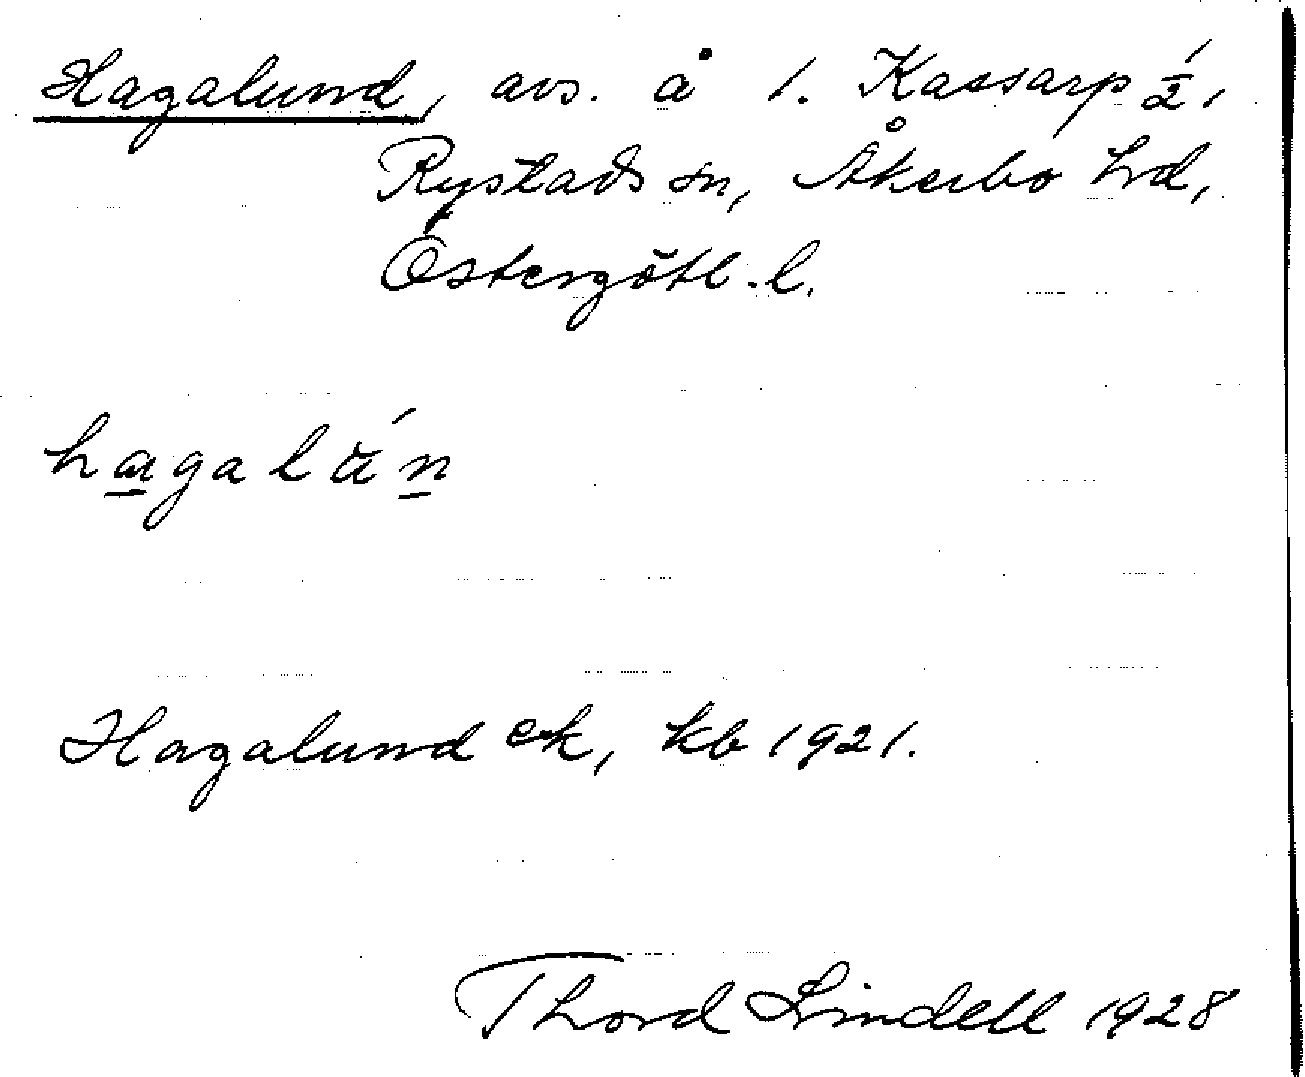 Hagalund, avs. å 1. Kassarp ½,
Rystads sn, Åkerbo hd,
Östergötl. l.
hagalun
Hagalund ek, kb 1921.
Thord Lindell 1928